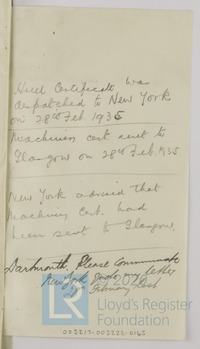 Hull Certificate was
despatched to New York
on 28th Feb 1935
Machinery cert sent to
Glasgow on 28th Feb. 1935
New York advised that
Machinery Cert. had
been sent to Glasgow.
Dartmouth, Please Communicate
New York letter
February
Lloyd's Register
Foundation